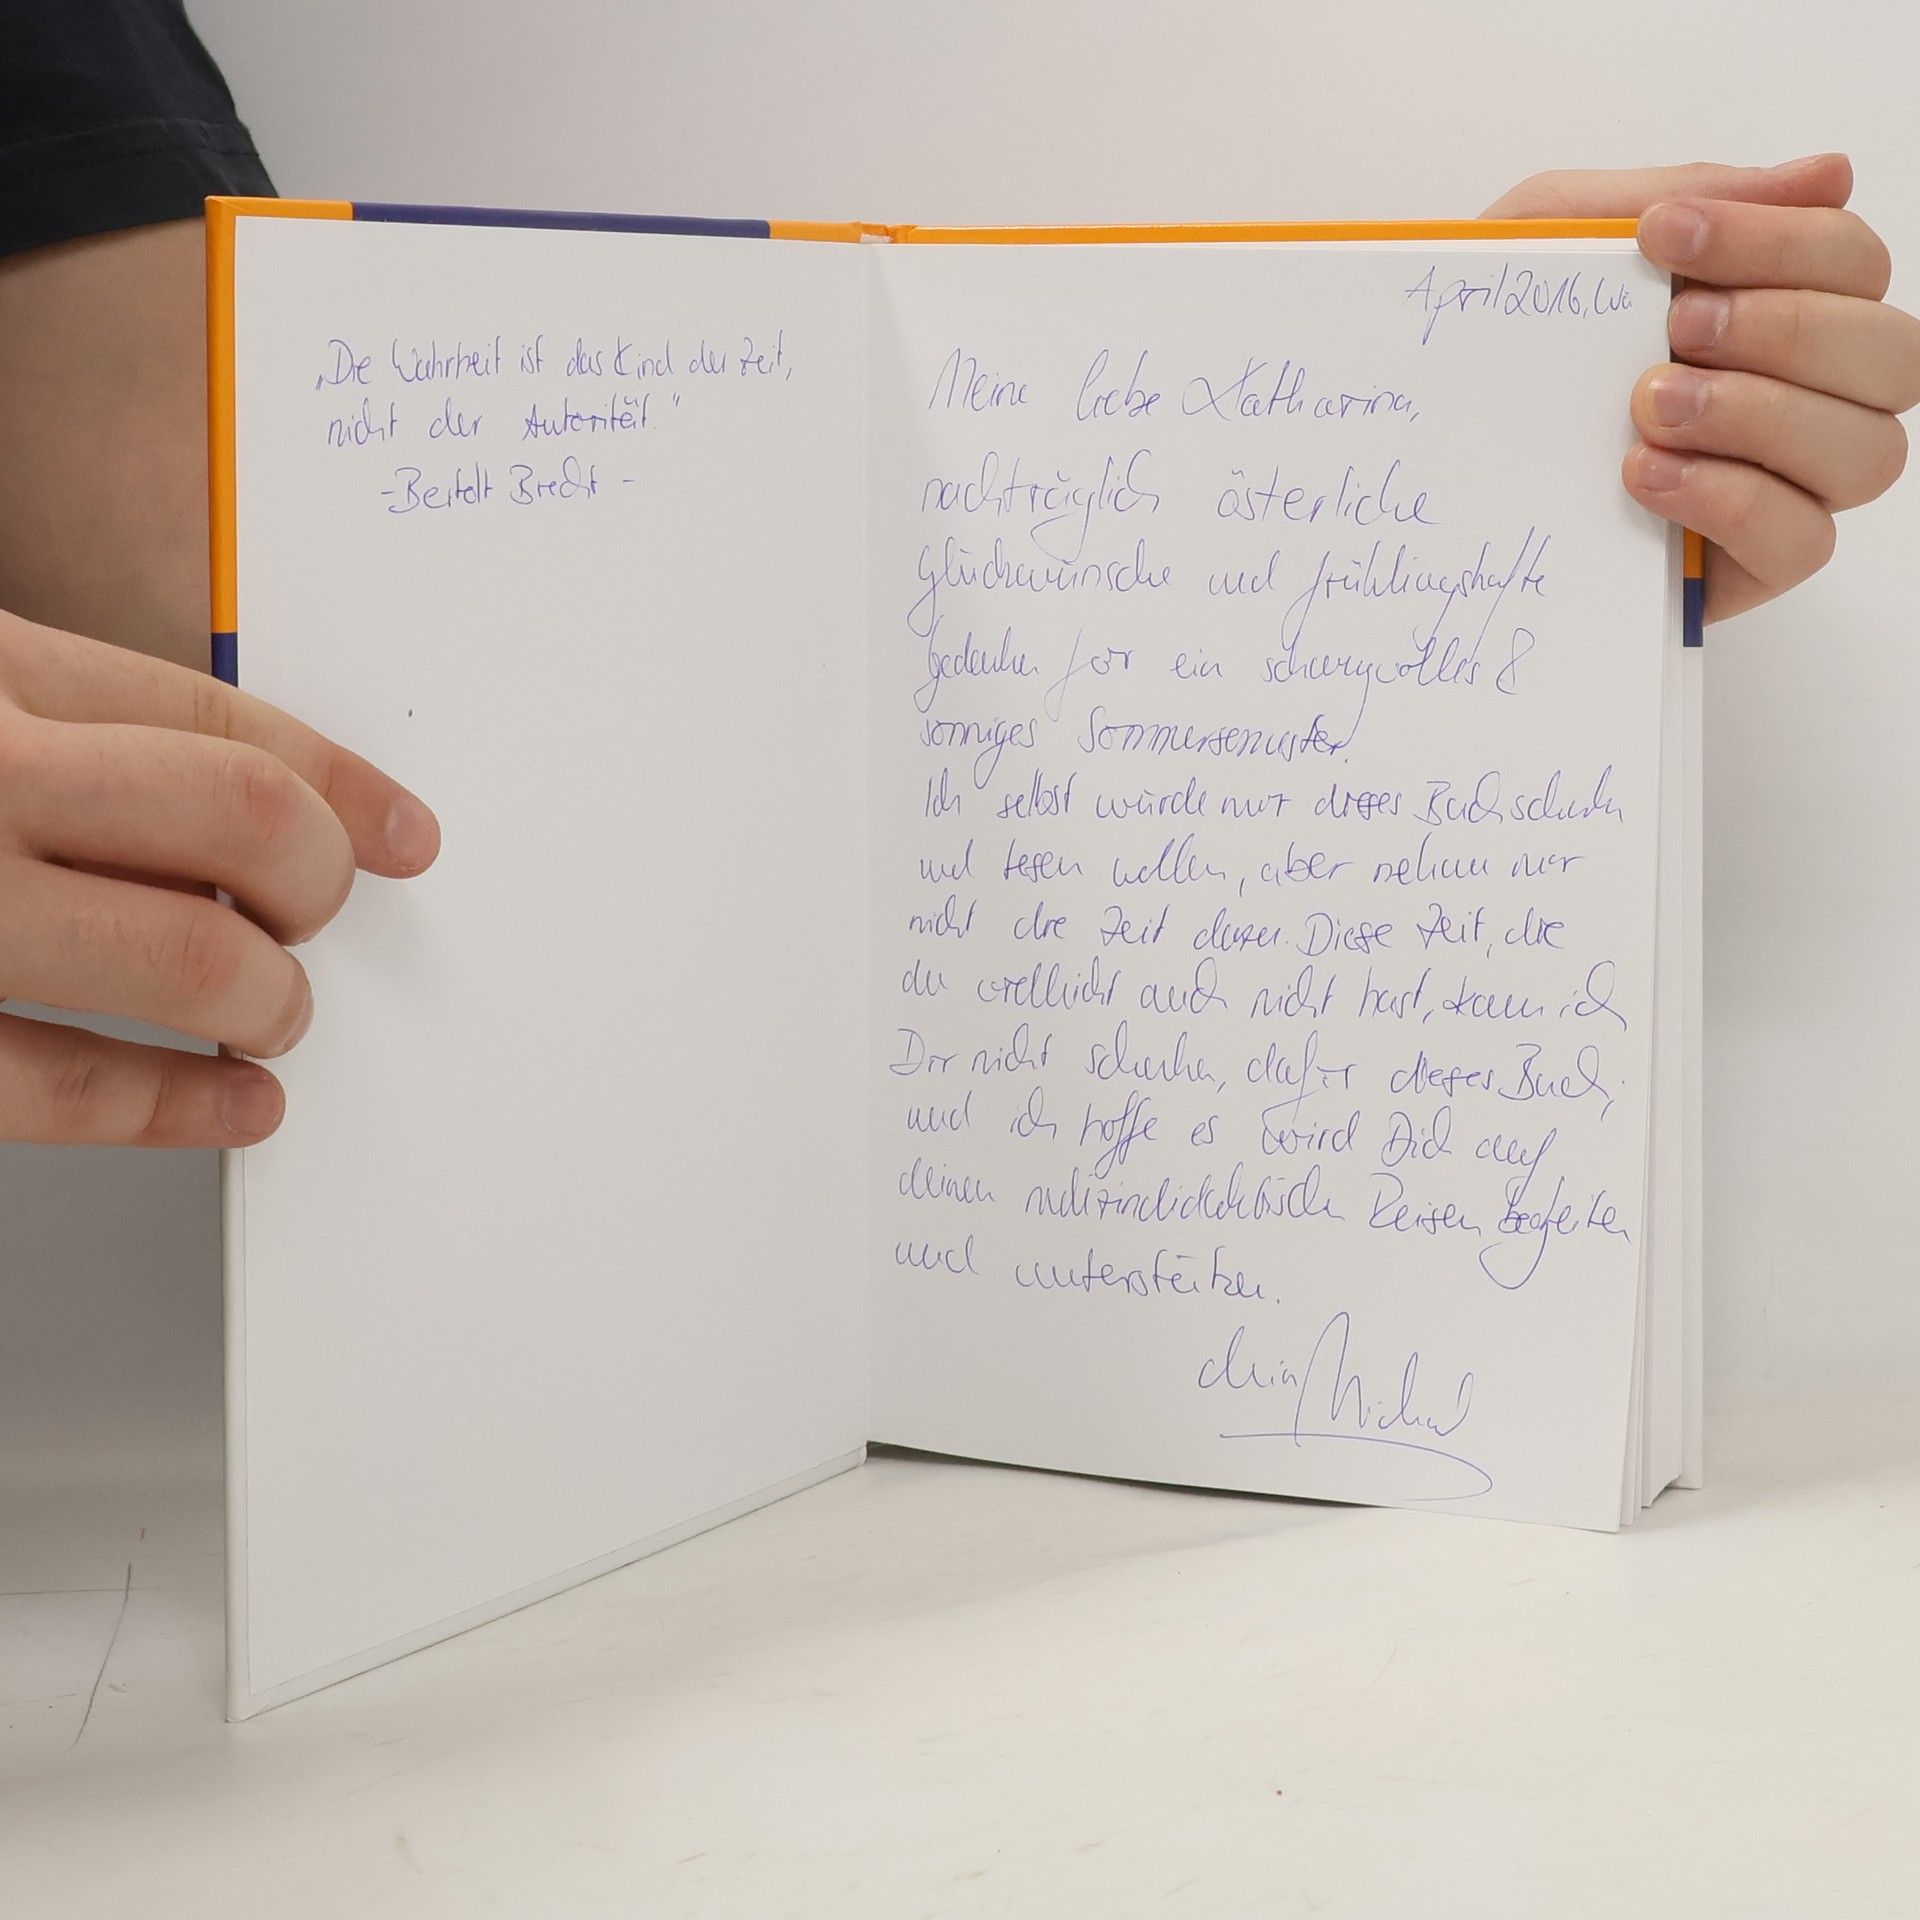 „Die Wahrheit ist das Kind der Zeit,
nicht der Autorität."
-Bertolt Brecht -
April 2016, Wü
Meine liebe Katharina,
nachträglich österliche
Glückwünsche und frühlingshafte
Gedanken für ein schwungvolles &
sonniges Sommersemester.
Ich selbst würde nur dieses Buch schenken
und lesen wollen, aber nehme mir
nicht die Zeit dazu. Diese Zeit, die
du vielleicht auch nicht hast, kann ich
Dir nicht schenken, dafür dieses Buch,
und ich hoffe es wird Dich auf
deinen medizindidaktischen Reisen begleiten
und unterstützen.
dein Michael